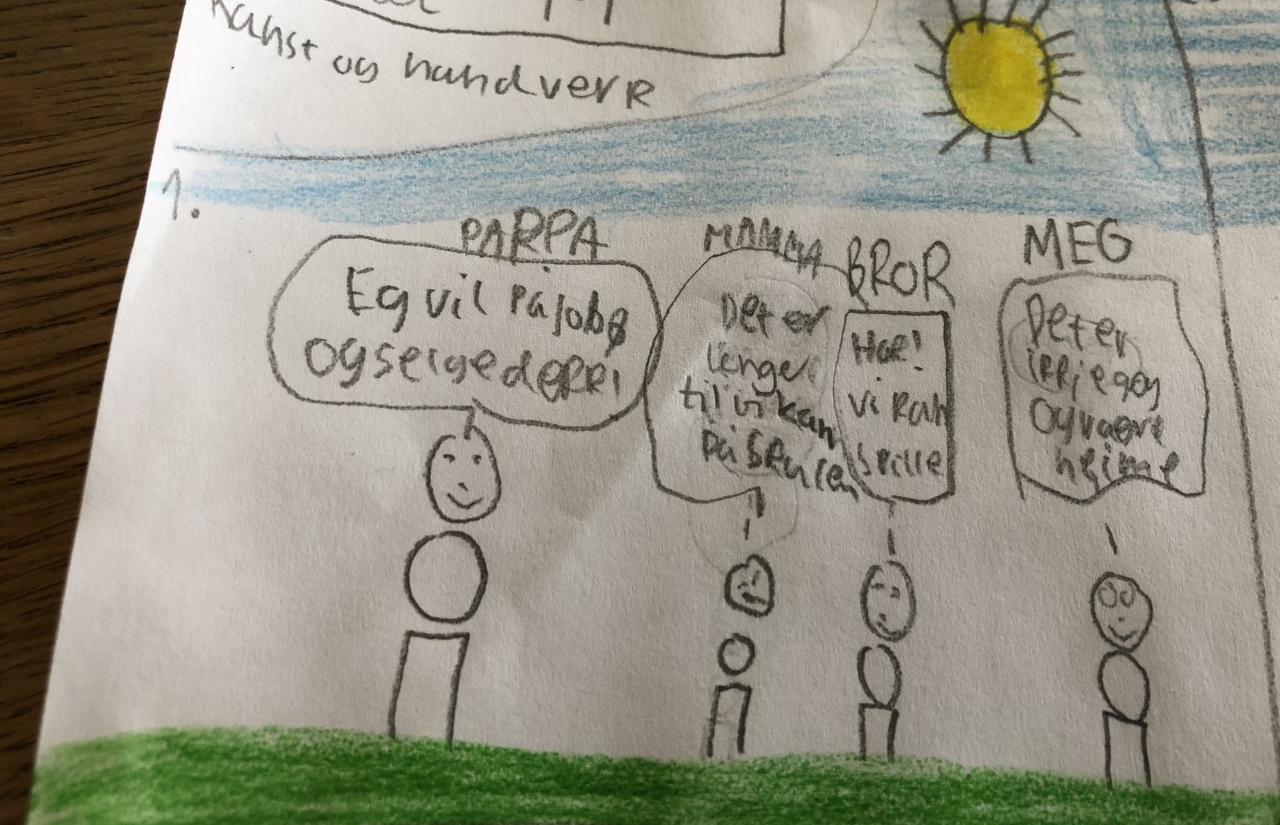 kunst og handverk
1.
PAPPA
Eg vil på jobb
og seige deppi
MAMMA
Det er
lenger
til vi kan
på skulen
BROR
Hae!
vi kan
spille
MEG
Det er
ikkje gøy
og være
heime